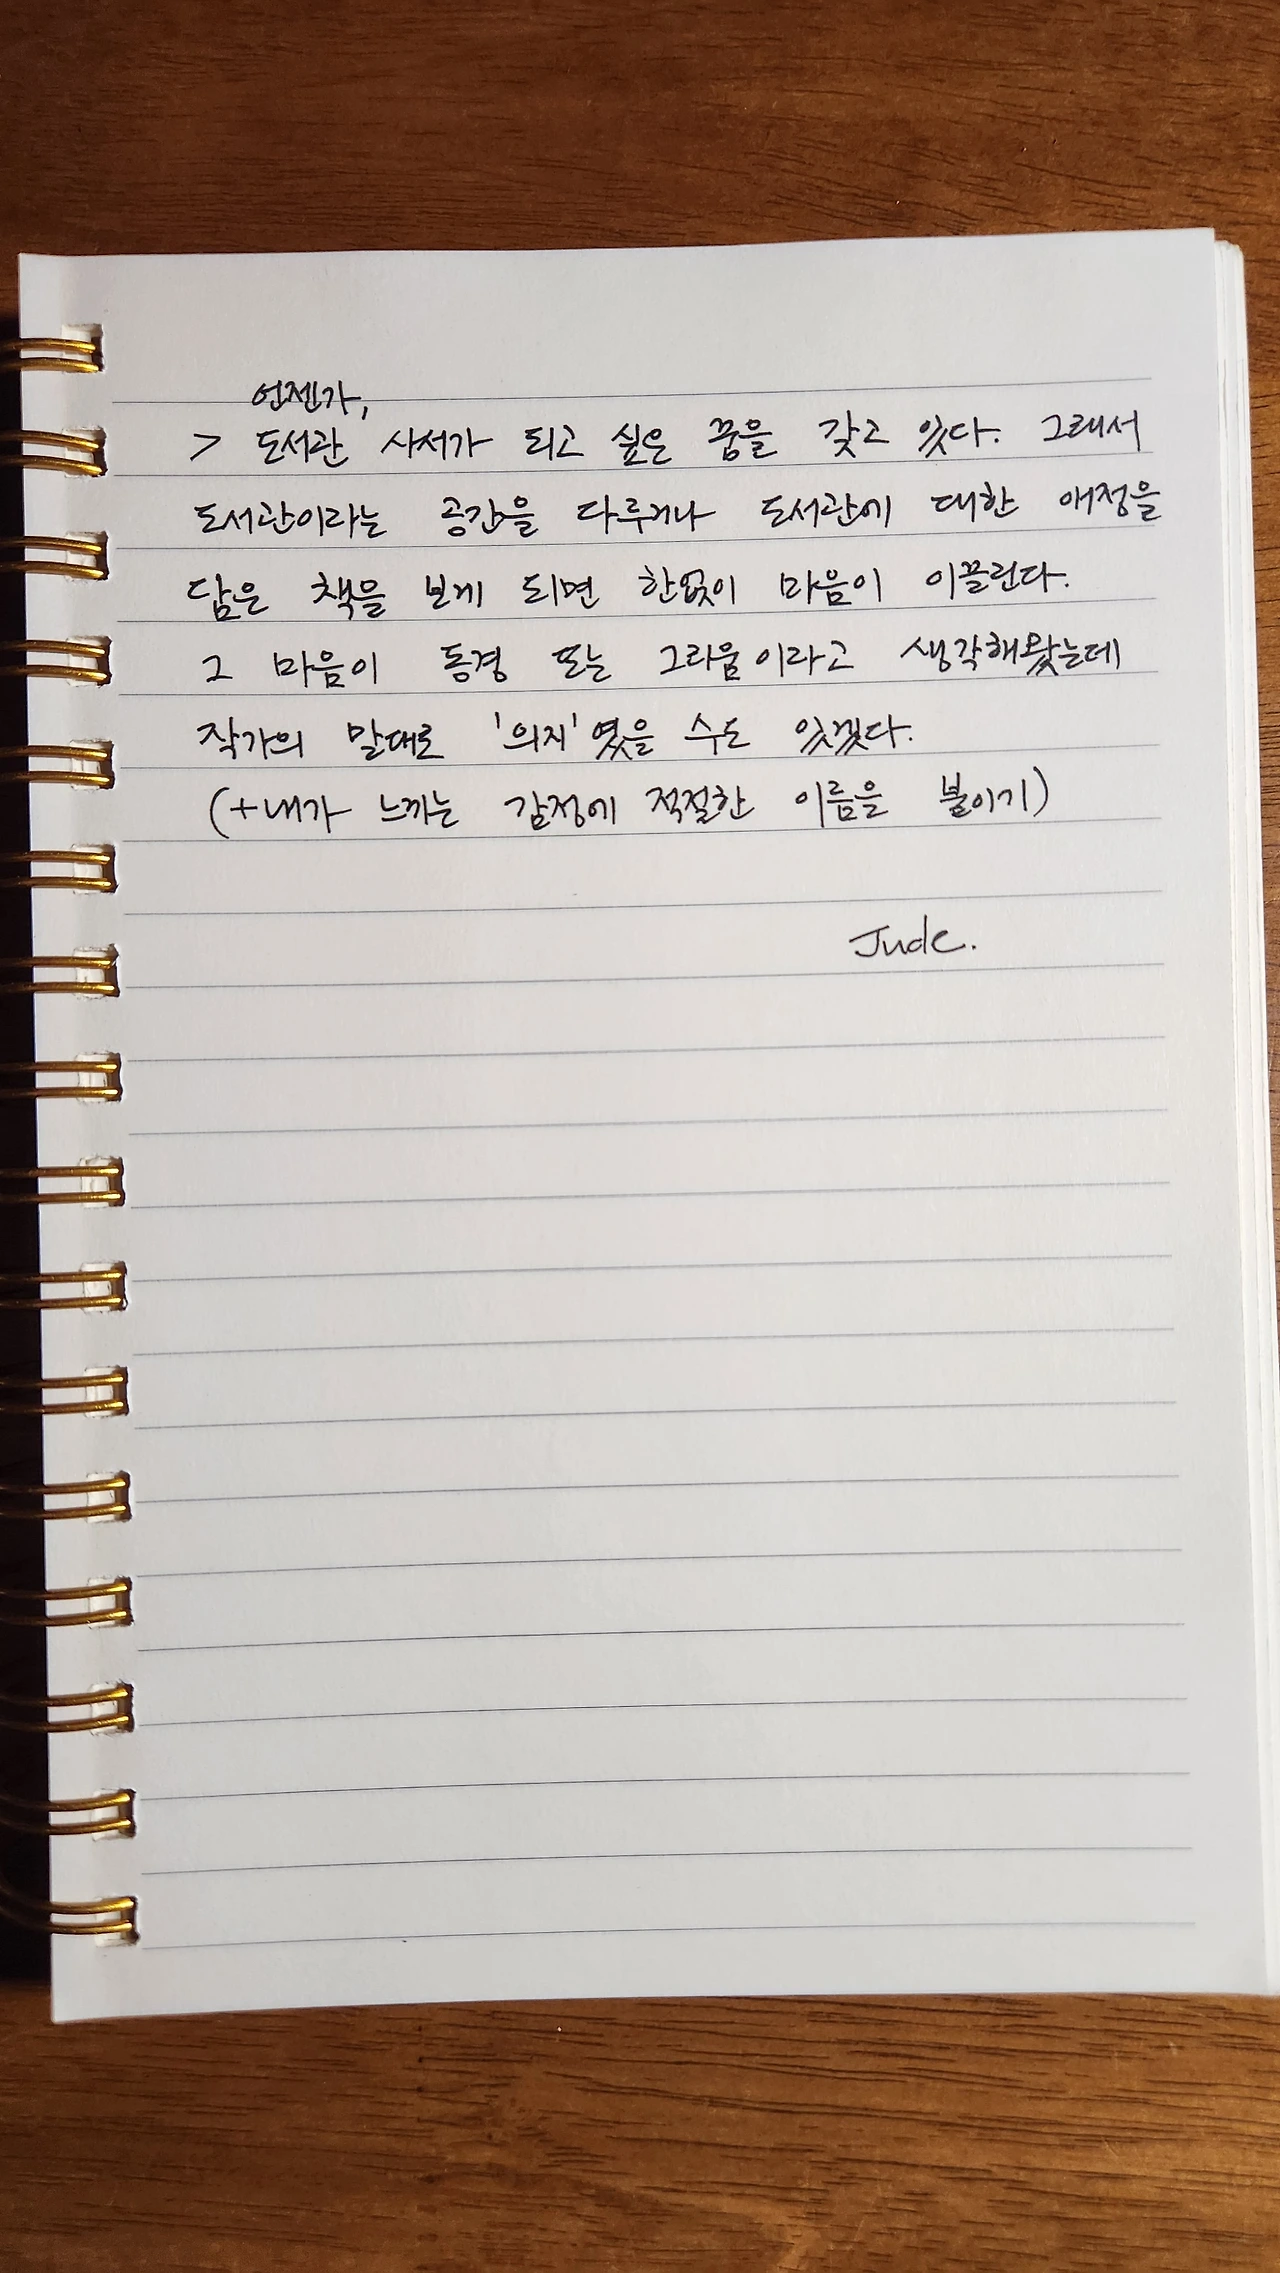 언젠가,
> 도서관 사서가 되고 싶은 꿈을 갖고 있다. 그래서
도서관이라는 공간을 다루거나 도서관에 대한 애정을
담은 책을 보게 되면 한없이 마음이 이끌린다.
그 마음이 동경 또는 그리움이라고 생각해왔는데
작가의 말대로 '의지'였을 수도 있겠다.
(+내가 느끼는 감정에 적절한 이름을 붙이기)
Jude.